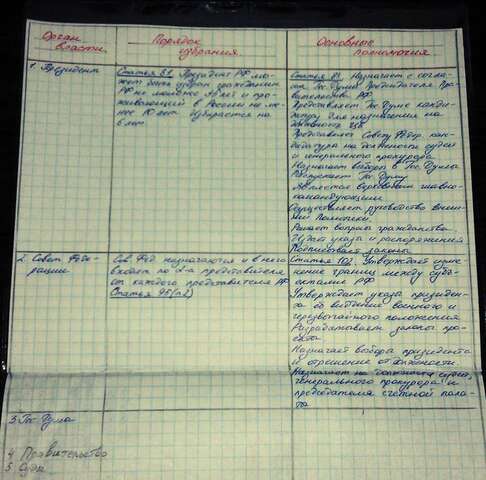 Орган власти.
Порядок избрания.
Основные полномочия
1. Президент
Статья 81. Президент РФ мо-
жет быть избран гражданин
РФ не моложе 35 лет и про-
живающий в России не ме-
нее 10 лет. Избирается на
6 лет
Статья 83. Назначает с согла-
сия Гос Думы Председателя Пра-
вительства РФ.
Представляет Гос Думе канди-
датуру для назначения на
должность
Представляет Совету Федер. кан-
дидатура на должности судей
и генерального прокурора
Назначает выборы в Гос. Думы
Распускает Гос Думу
Является верховным главно-
командующим
Осуществляет руководство внеш-
ней политики.
Решает вопросы гражданства.
Издаёт указа и распоряжения
Подписывает законы
2. Совет Феде-
рации
Сов Фед назначаются и в него
входят по 2-а представителя
от каждого представителя РФ
Статья 95(п2)
Статья 102. Утверждает изме-
нение границ между субъ-
ектами РФ
Утверждает указа президен-
та во введение военного и
черезвычайного положения
Разрабатывает законы про-
екта.
Назначает выбора президента
и отрешение от должности.
Назначает на должности судей,
генерального прокурора и
председателя счетной пала-
ты
3 Гос Дума
4 Правительство
5 Суды